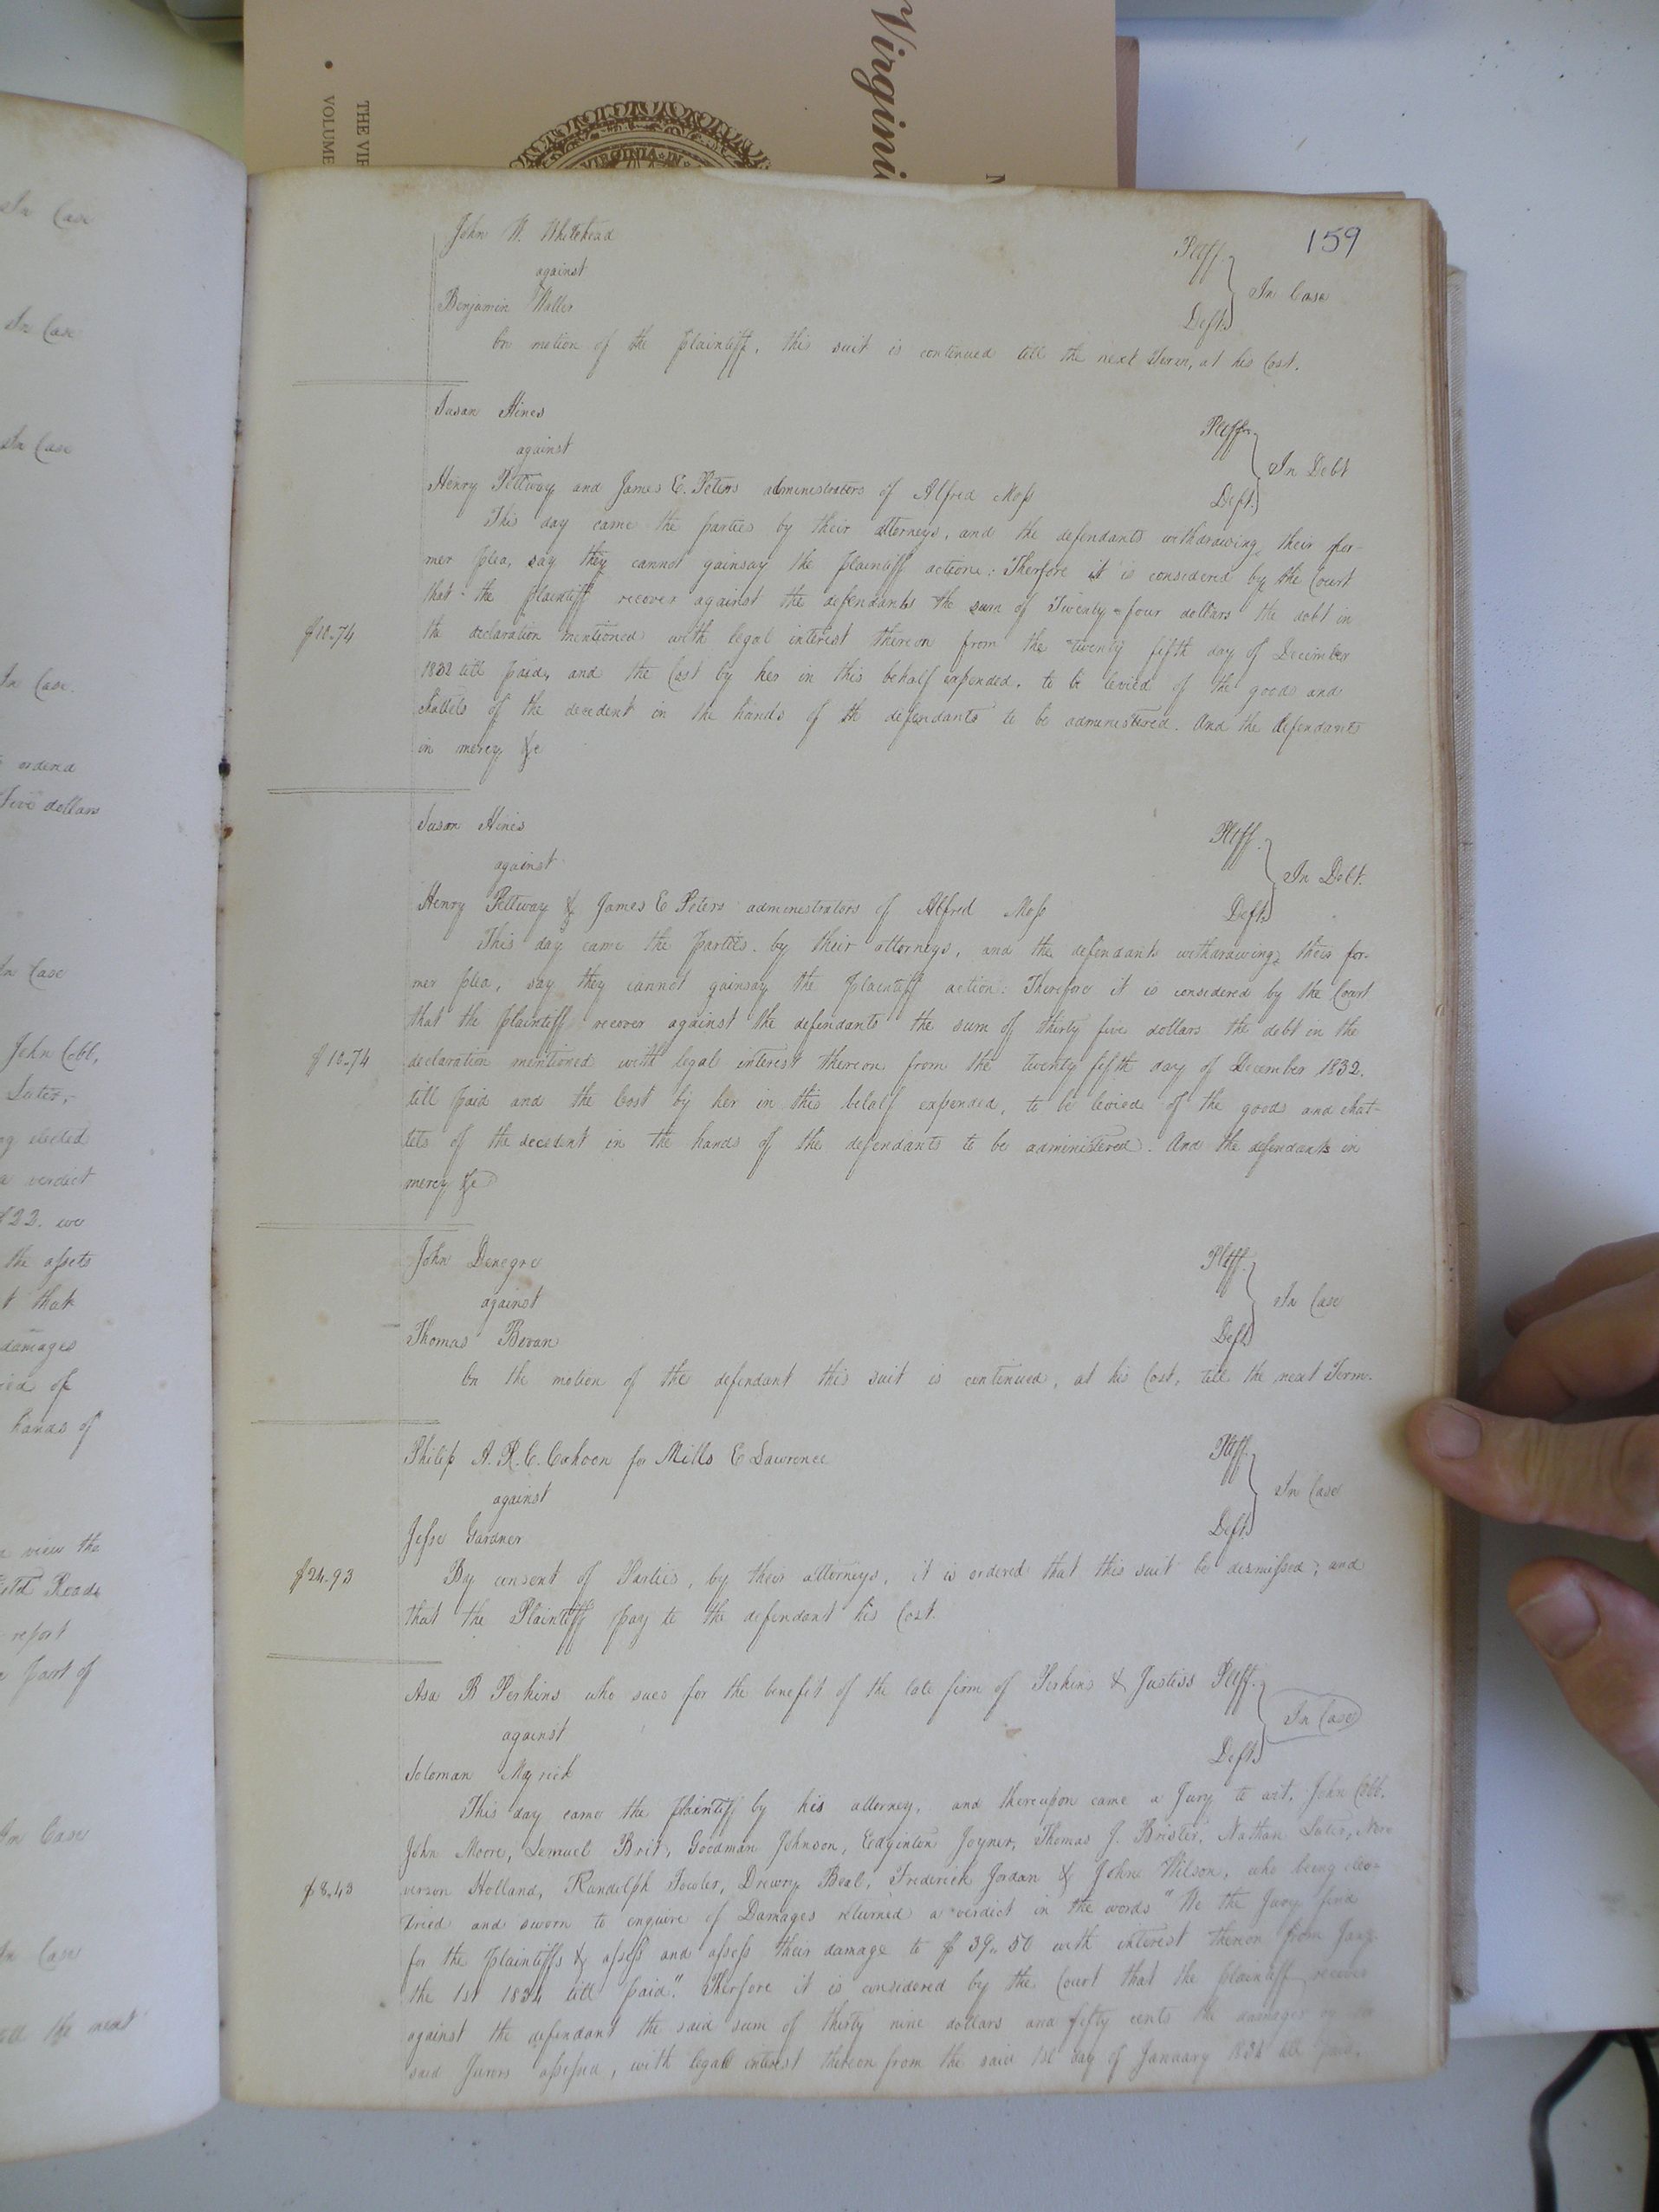 Virgini
THE VIR
VOLUME
VIRGINIA IN
159
John W. Whitehead Pltff.
against In Case
Benjamin Waller Deft.
On motion of the plaintiff, this suit is continued till the next Term, at his Cost.
Susan Hines Pltff.
against In Debt
Henry Pettway and James E. Peters administrators of Alfred Moss Deft.
This day came the parties by their attorneys, and the defendants withdrawing their for-
mer plea, say they cannot gainsay the plaintiff actione: Therfore it is considered by the Court
that the plaintiff recover against the defendants the sum of Twenty-four dollars the debt in
$10.74 the declaration mentioned with legal interest thereon from the twenty fifth day of December
1832 till paid, and the Cost by her in this behalf expended, to be levied of the goods and
chattels of the decedent in the hands of the defendants to be administered. And the defendants
in mercy &c
Susan Hines Pltff.
against In Debt.
Henry Pettway & James E Peters administrators of Alfred Moss Deft.
This day came the parties by their attorneys, and the defendants withdrawing their for-
mer plea, say they cannot gainsay the plaintiff action: Therefore it is considered by the Court
that the plaintiff recover against the defendants the sum of thirty five dollars the debt in the
$10.74 declaration mentioned with legal interest thereon from the twenty fifth day of December 1832.
till paid and the Cost by her in this behalf expended, to be levied of the goods and chat-
tels of the decedent in the hands of the defendants to be administered. And the defendants in
mercy &c
John Denegre Pltff.
against In Case
Thomas Bevan Deft
On the motion of the defendant this suit is continued, at his Cost, till the next Term.
Philip A. R. C. Cohoon for Mills E Lawrence Pltff.
against In Case
Jesse Gardner Deft.
$24.93 By consent of Parties, by their attorneys, it is ordered that this suit be dismissed; and
that the Plaintiff pay to the defendant his Cost.
Asa B Perkins who sues for the benefit of the late firm of Perkins & Justiss Pltff.
against In Case
Soloman Myrick Deft.
This day came the plaintiff by his attorney, and thereupon came a Jury to wit, John Cobb,
John Moore, Lemuel Brit, Goodman Johnson, Edginton Joyner, Thomas J. Brister, Nathan
$8.43 verson Holland, Randolph Fowler, Drewry Beal, Frederick Jordan & John Wilson, who being elec-
tried and sworn to enquire of Damages returned a verdict in the words "We the Jury find
for the plaintiffs & assess and assess their damage to $39.50 with interest thereon from Jany.
the 1st 1834 till paid". Therfore it is considered by the Court that the plaintiff recover
against the defendant the said sum of thirty nine dollars and fifty cents the damages
said Jurors assessed, with legal interest thereon from the said 1st day of January 1834 till paid.
In Case
In Case
In Case
In Case.
ordered
Five dollars
In Case
John Cobb,
elected
a verdict
$22. we
the assets
that
damages
of
hands of
view the
Road
report
part of
In Case
In Case
till the next